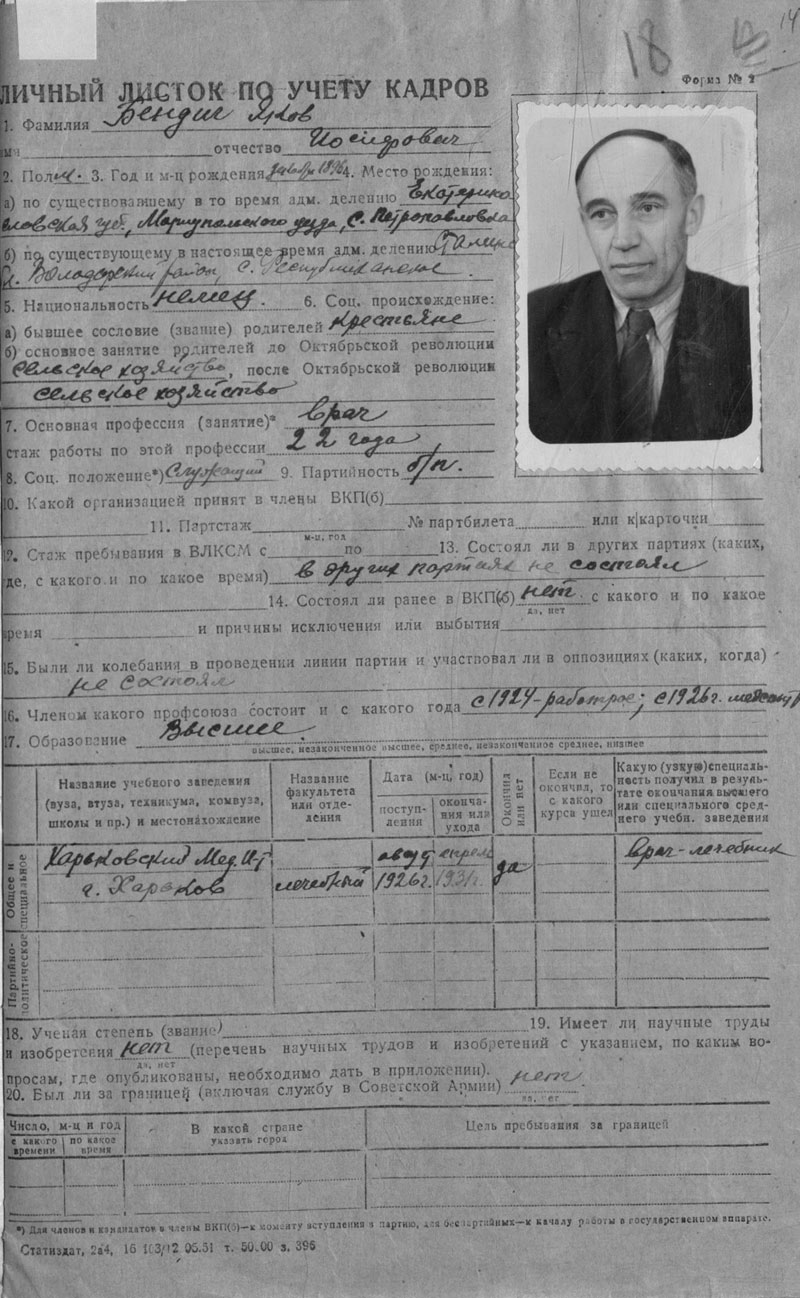 14
18
Форма № 2
ЛИЧНЫЙ ЛИСТОК ПО УЧЕТУ КАДРОВ
1. Фамилия Бендиг Яков
мя отчество Иосифович
2. Пол м. 3. Год и м-ц рождения 1896 4. Место рождения:
а) по существовавшему в то время адм. делению Екатерино
славская губ, Мариупольского уезда, с. Петропавловка
б) по существующему в настоящее время адм. делению Сталинс
Володарский район, с. Республиканское.
5. Национальность немец. 6. Соц. происхождение:
а) бывшее сословие (звание) родителей крестьяне
б) основное занятие родителей до Октябрьской революции
сельское хозяйство, после Октябрьской революции
сельское хозяйство
7. Основная профессия (занятие)* врач
стаж работы по этой профессии 22 года
8. Соц. положение*) Служащий 9. Партийность б/п.
10. Какой организацией принят в члены ВКП(б)
11. Партстаж № партбилета или к|карточки
м-ц, год
12. Стаж пребывания в ВЛКСМ с по 13. Состоял ли в других партиях (каких,
где, с какого и по какое время) в других партиях не состоял
14. Состоял ли ранее в ВКП(б) нет с какого и по какое
да, нет
время и причины исключения или выбытия
15. Были ли колебания в проведении линии партии и участвовал ли в оппозициях (каких, когда)
не состоял
16. Членом какого профсоюза состоит и с какого года с 1924-работрос; с 1926г. медсантр
17. Образование Высшее.
высшее, незаконченное высшее, среднее, незаконченное среднее, низшее
Название учебного заведения (вуза, втуза, техникума, комвуза, школы и пр.) и местонахождение
Название факультета или отделения
Дата (м-ц, год)
поступ-
ления
оконча-
ния или
ухода
Окончил или нет
Если не окончил, то с какого курса ушел
Какую (узкую) специаль-
ность получил в резуль-
тате окончания высшего
или специального сред-
него учебн. заведения
Общее и специальное
Харьковский Мед. Ин-т
г. Харьков
лечебный
август
1926г.
апрель
1931г.
да
врач-лечебник
Партийно-политическое
18. Ученая степень (звание) 19. Имеет ли научные труды
и изобретения нет (перечень научных трудов и изобретений с указанием, по каким во-
да, нет
просам, где опубликованы, необходимо дать в приложении).
20. Был ли за границей (включая службу в Советской Армии) нет
да, нет
Число, м-ц и год
с какого времени
по какое время
В какой стране
указать город
Цель пребывания за границей
*) Для членов и кандидатов в члены ВКП(б)—к моменту вступления в партию, для беспартийных—к началу работы в государственном аппарате.
Статиздат, 2а4, 16 103/12 05.51 т. 50.00 з. 396